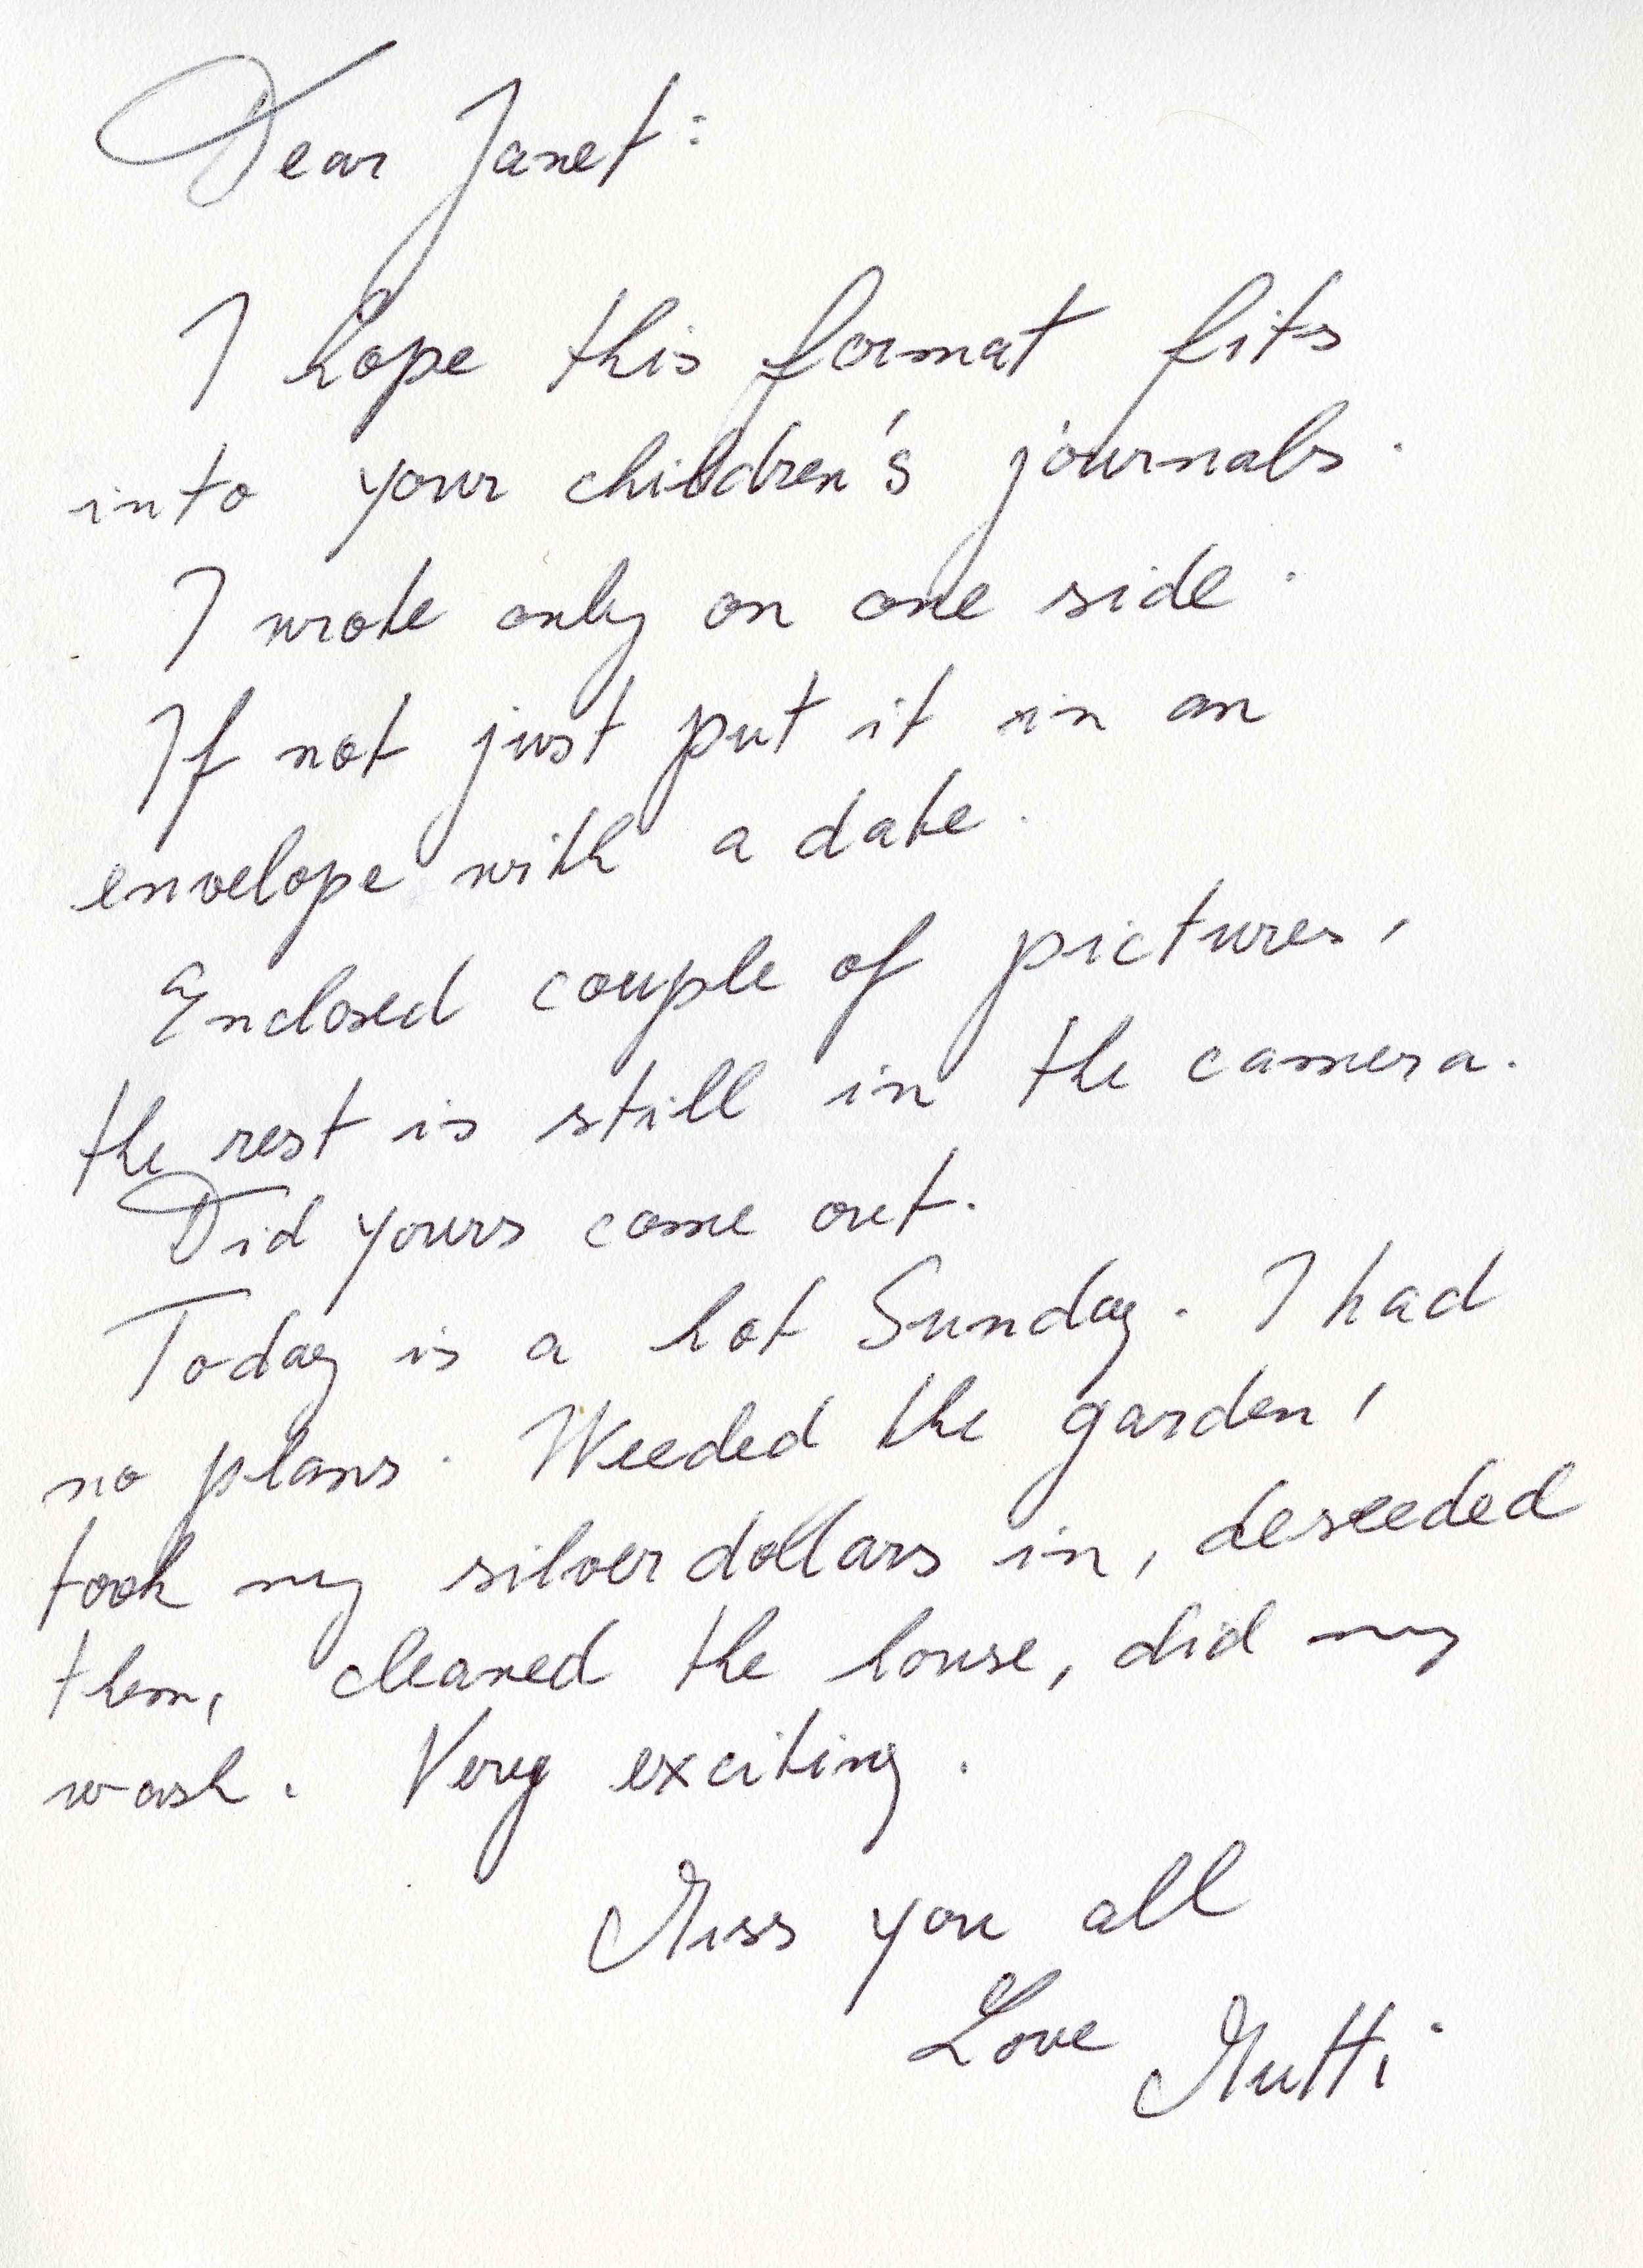 Dear Janet:
I hope this format fits
into your children's journals.
I wrote only on one side.
If not just put it in an
envelope with a date.
Enclosed couple of pictures,
the rest is still in the camera.
Did yours come out.
Today is a hot Sunday. I had
no plans. Weeded the garden,
took my silverdollars in, deseeded
them, cleaned the house, did my
wash. Very exciting.
Miss you all
Love Mutti